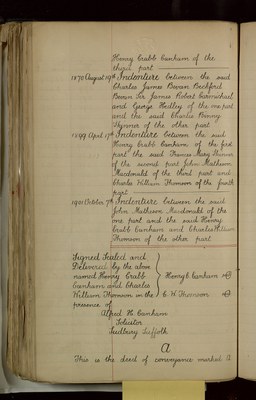 Henry Crabb Canham of the
third part
1870 August 19th Indenture between the said
Charles James Bevan Beckford
Bevan Sir James Robert Carmichael
and George Hedley of the one part
and the said Charles Penny
of the other part
1899 April 17th Indenture between the said
Henry Crabb Canham of the first
part the said Frances Mary Thomson
of the second part John Matheson
Macdonald of the third part and
Charles William Thomson of the fourth
part
1901 October 7th Indenture between the said
John Matheson Macdonald of the
one part and the said Henry
Crabb Canham and Charles William
Thomson of the other part
Signed Sealed and
Delivered by the above
named Henry Crabb
Canham and Charles
William Thomson in the
presence of
Henry C Canham
C W Thomson
Alfred H. Canham
Solicitor
Sudbury Suffolk
A
This is the deed of conveyance marked A